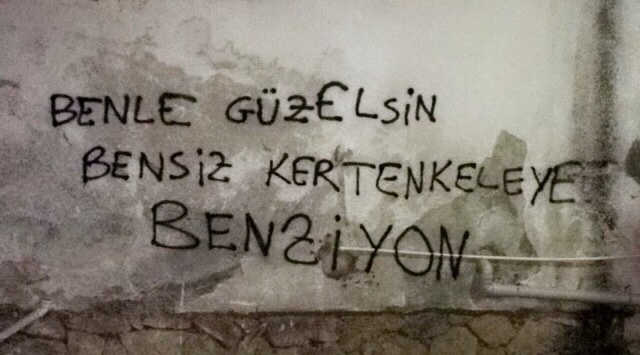 BENLE GÜZELSİN
BENSİZ KERTENKELEYE
BENZİYON